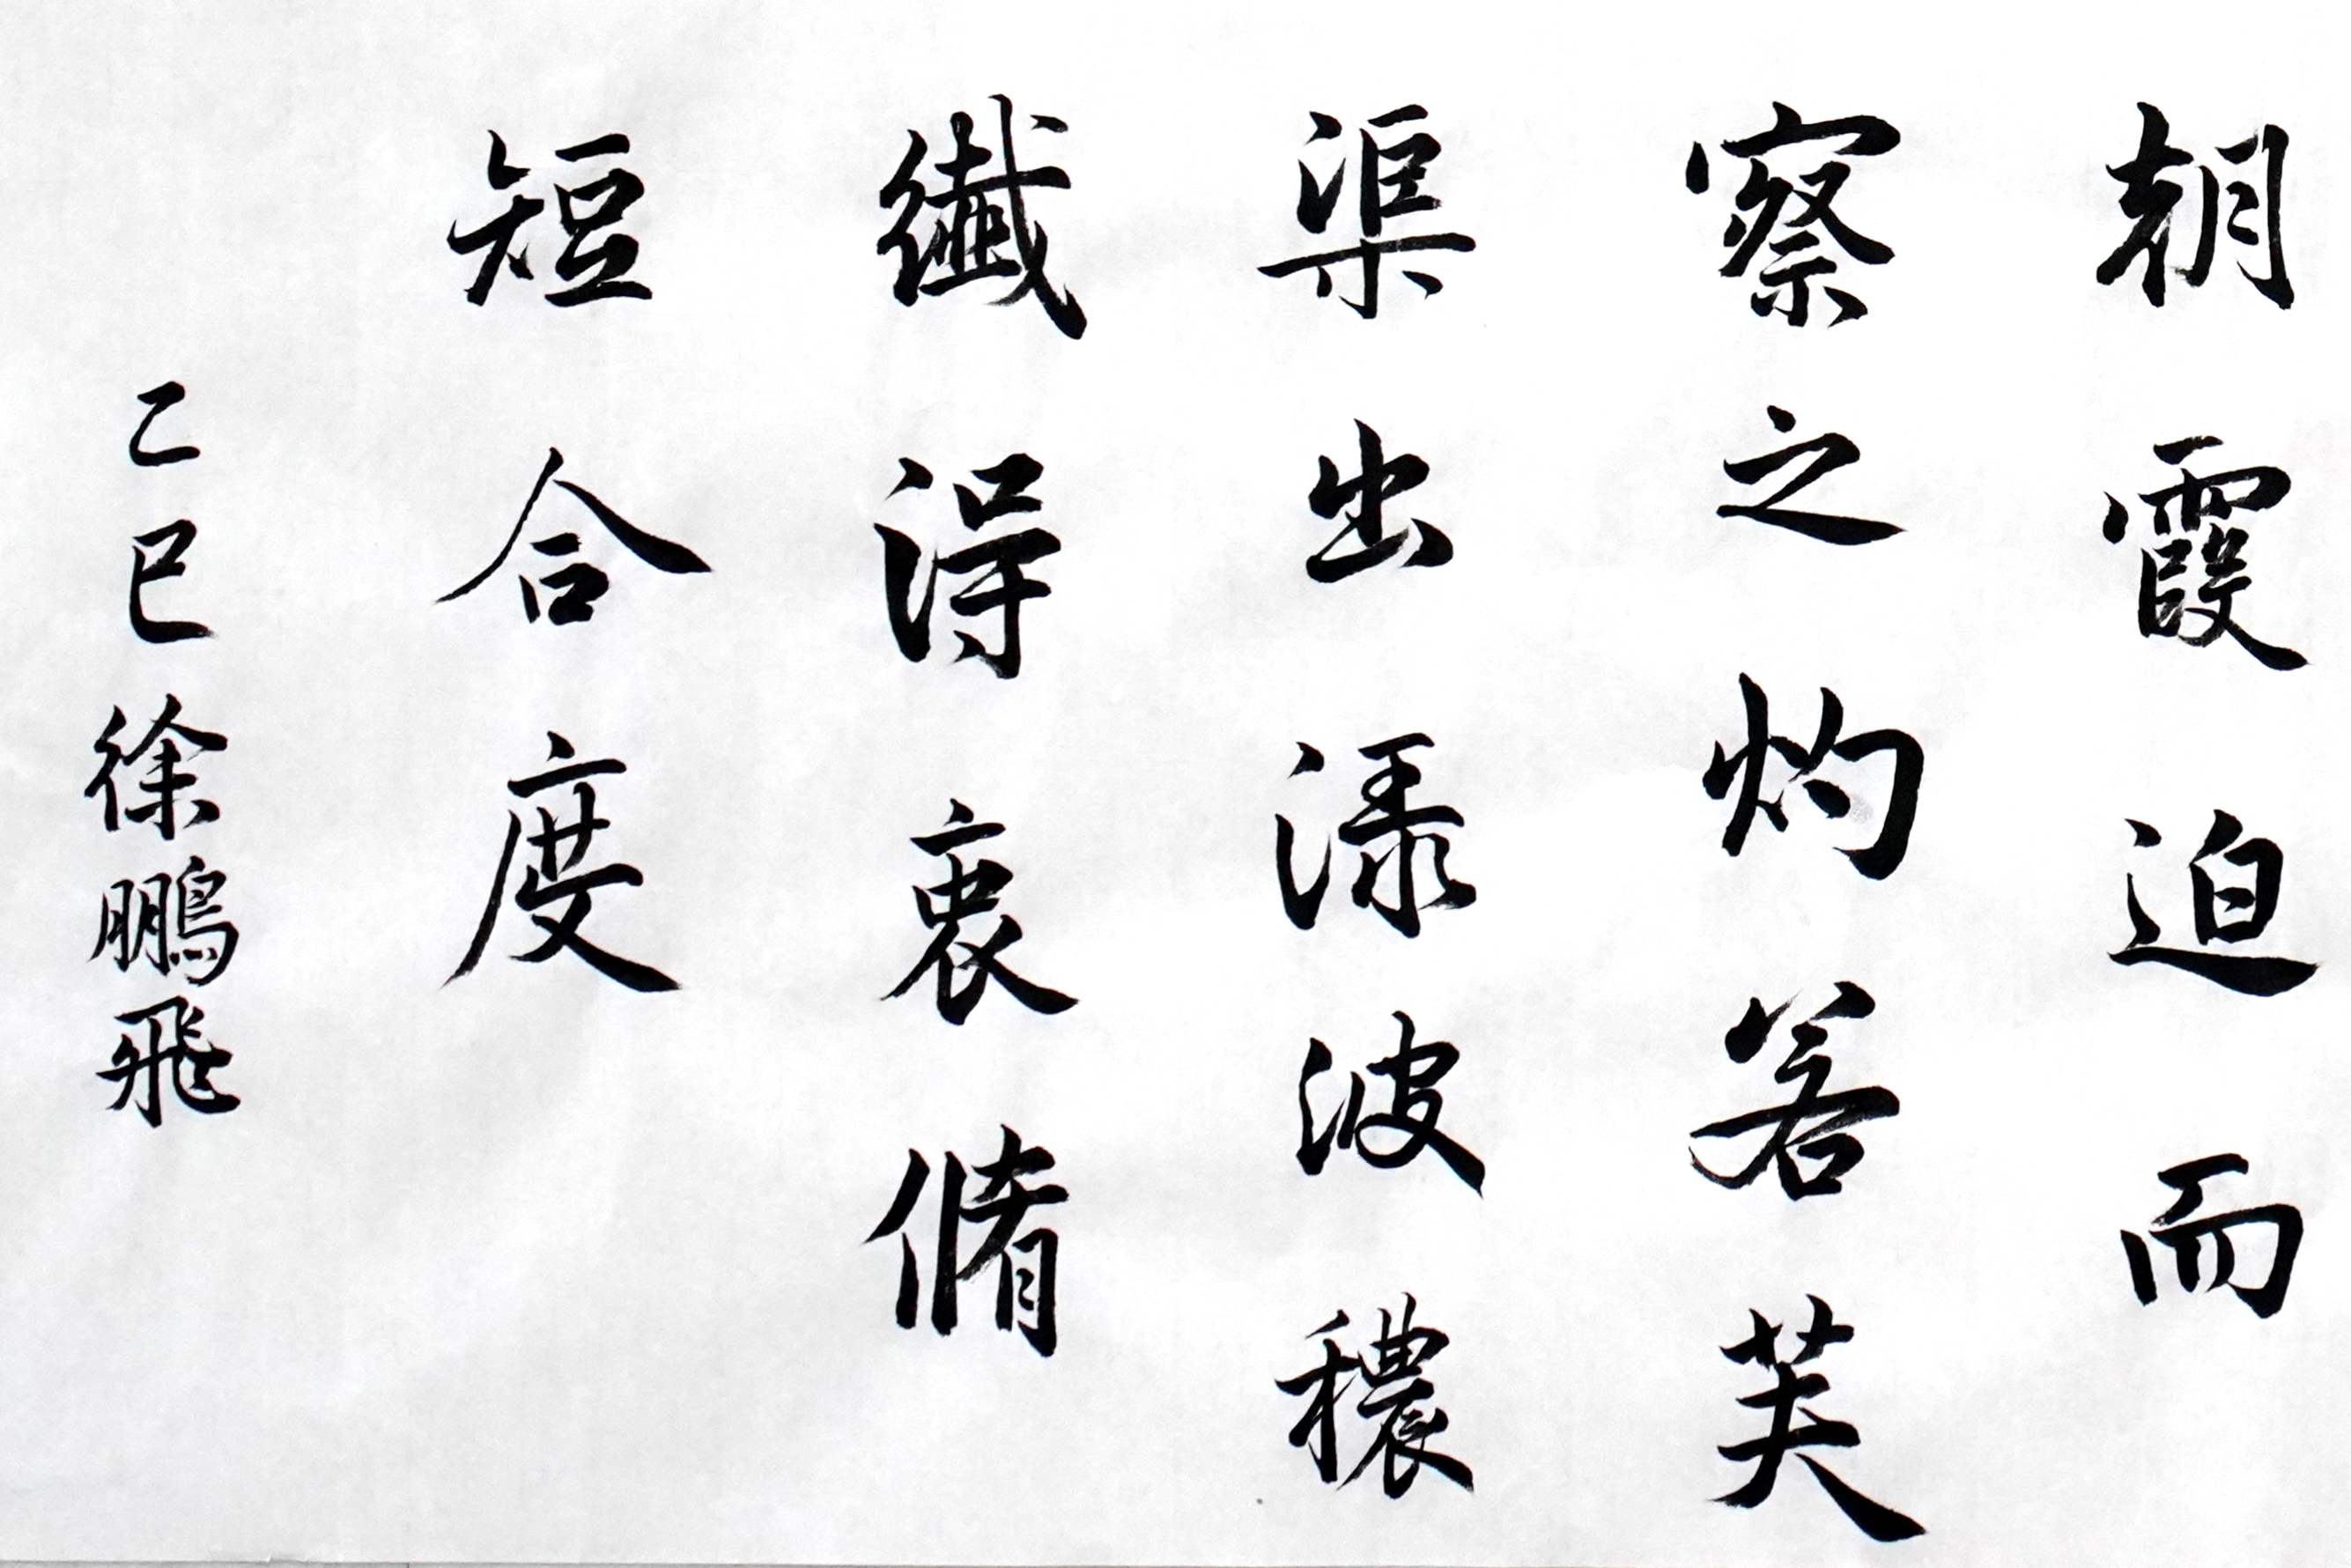 朝霞迫而
察之灼若芙
渠出淥波穠
纖得衷脩
短合度
乙巳徐鵬飛